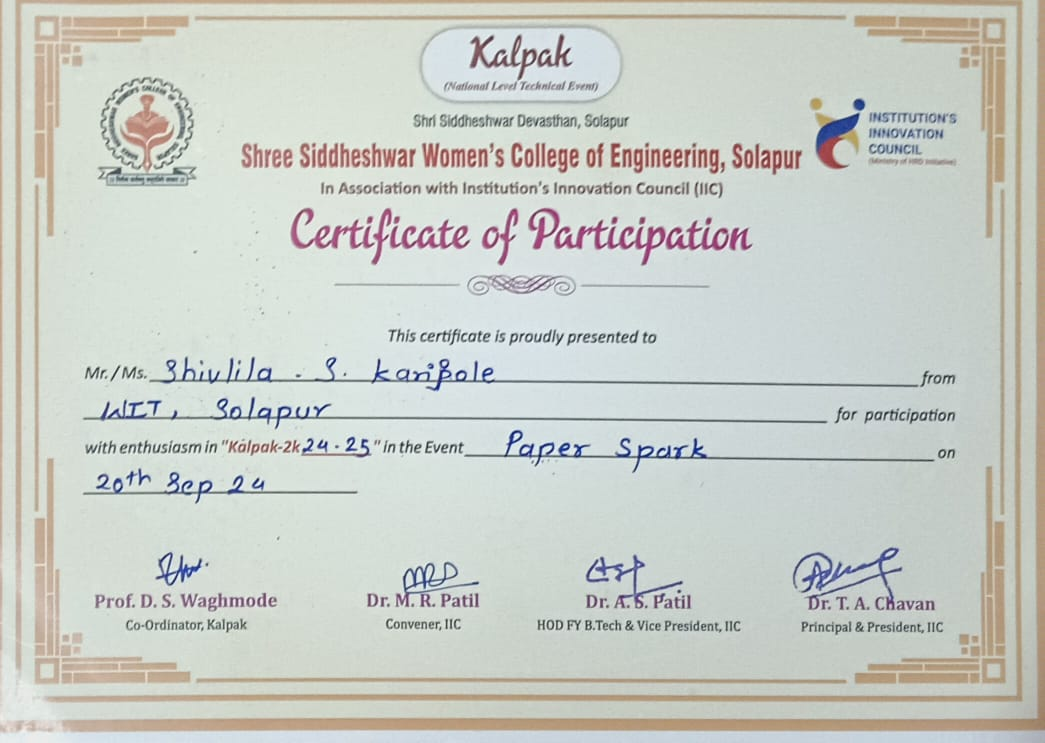 Kalpak
(National Level Technical Event)
Shri Siddheshwar Devasthan, Solapur
Shree Siddheshwar Women's College of Engineering, Solapur
In Association with Institution's Innovation Council (IIC)
INSTITUTION'S
INNOVATION
COUNCIL
(Ministry of HRD Initiative)
Certificate of Participation
This certificate is proudly presented to
Mr./Ms. Shivlila . S. from
WIT, Solapur for participation
with enthusiasm in "Kalpak-2k24-25" in the Event Paper Spark on
20th Sep 24
Prof. D. S. Waghmode Dr. M. R. Patil Dr. A. S. Patil Dr. T. A. Chavan
Co-Ordinator, Kalpak Convener, IIC HOD FY B.Tech & Vice President, IIC Principal & President, IIC